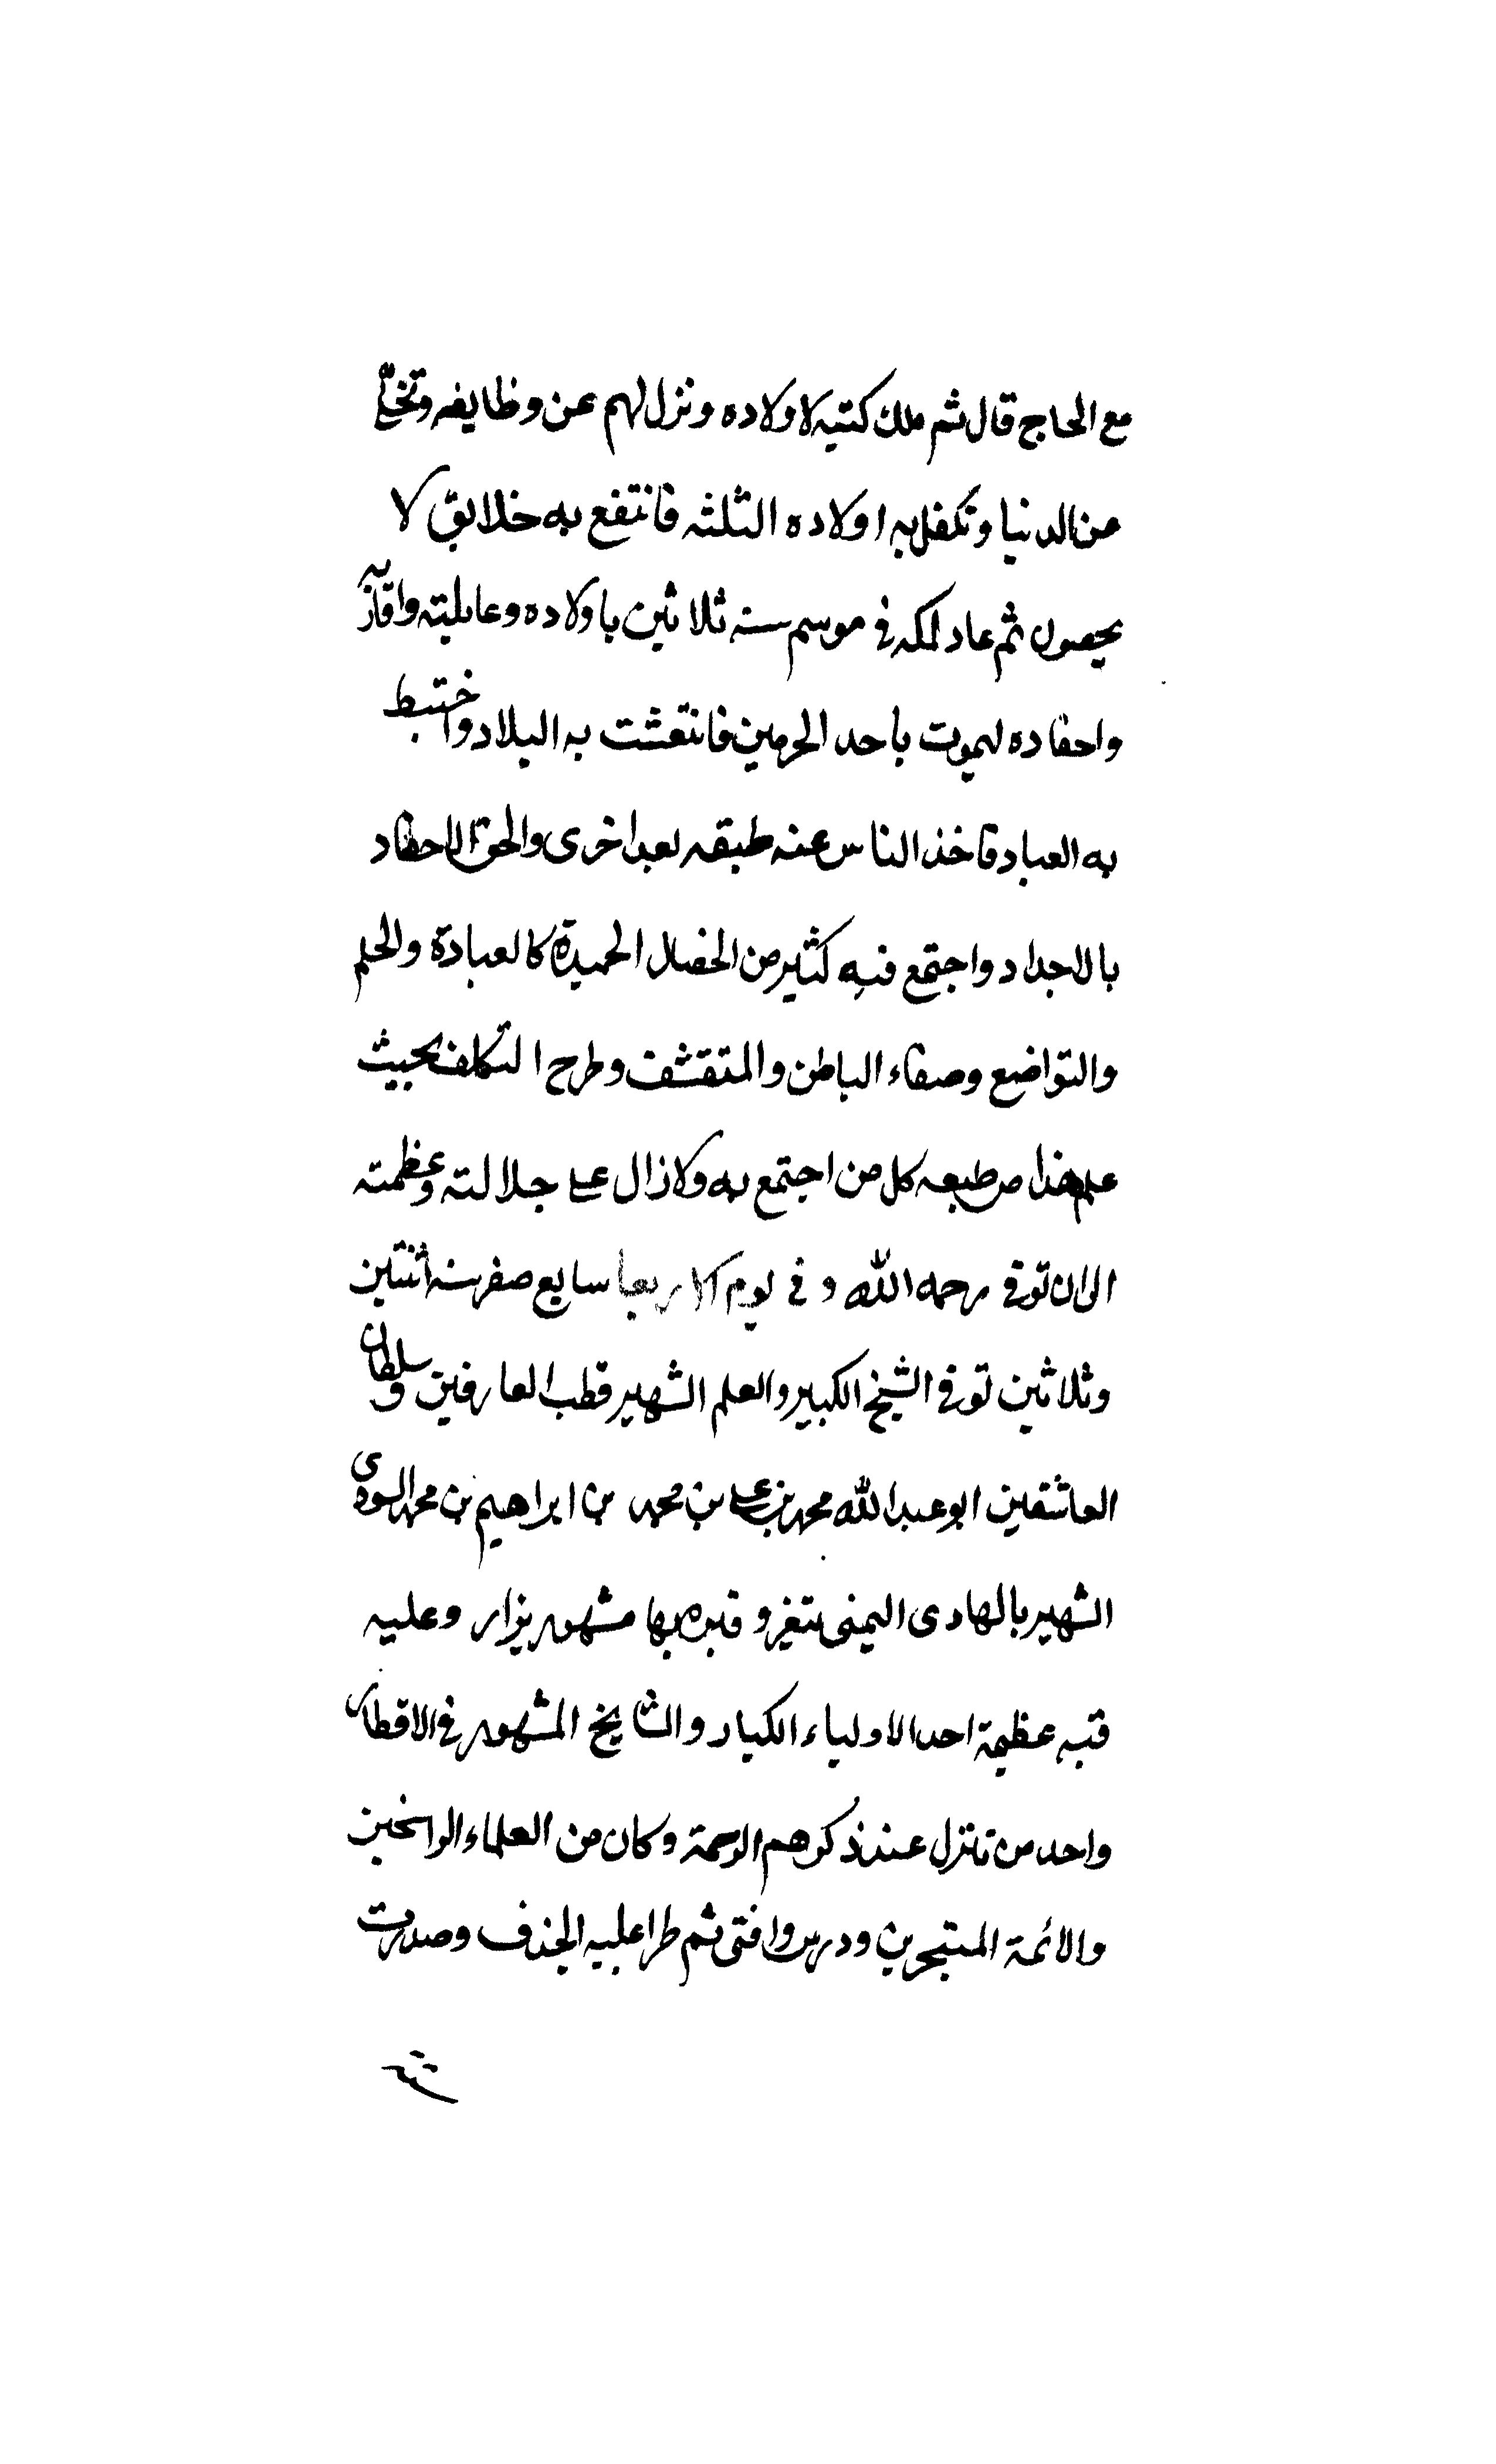 مع الحاج قال ثم ملك كتبه لاولاده ونزل لهم عن وظايفه وتخلّى
عن الدنيا وتكفل به اولاده الثلثه فانتفع به خلايق لا
يحصون ثم عاد لمكه في موسم سنه ثلاثين باولاده وعايلته واقاربه
واحفاده ليموت باحد الحرمين فانتعشت به البلاد واغتبط
به العباد فاخذ الناس عنه طبقه بعد اخرى والحق الاحفاد
بالاجداد واجتمع فيه كثير من الخصال الحميدة كالعبادة والحلم
والتواضع وصفاء الباطن والتقشف وطرح التكلف بحيث
علم هذا من طبعه كل من اجتمع به ولازال على جلالته وعظمته
الى ان توفي رحمه الله وفي يوم الاربعا سابع صفر سنه اثنتين
وثلاثين توفي الشيخ الكبير والعلم الشهير قطب العارفين وسلطان
العاشقين ابو عبد الله محمد بن علي بن محمد بن ابراهيم بن محمد السودى
الشهير بالهادى اليمنى بتعز وقبره بها مشهور يزار وعليه
قبه عظيمة احد الاولياء الكبار والمشايخ المشهور في الاقطار
واحد من تتنزل عند ذكرهم الرحمة وكان من العلماء الراسخين
والائمة المتبحرين ودرس وافتى ثم طرا عليه الجذب وصدرت